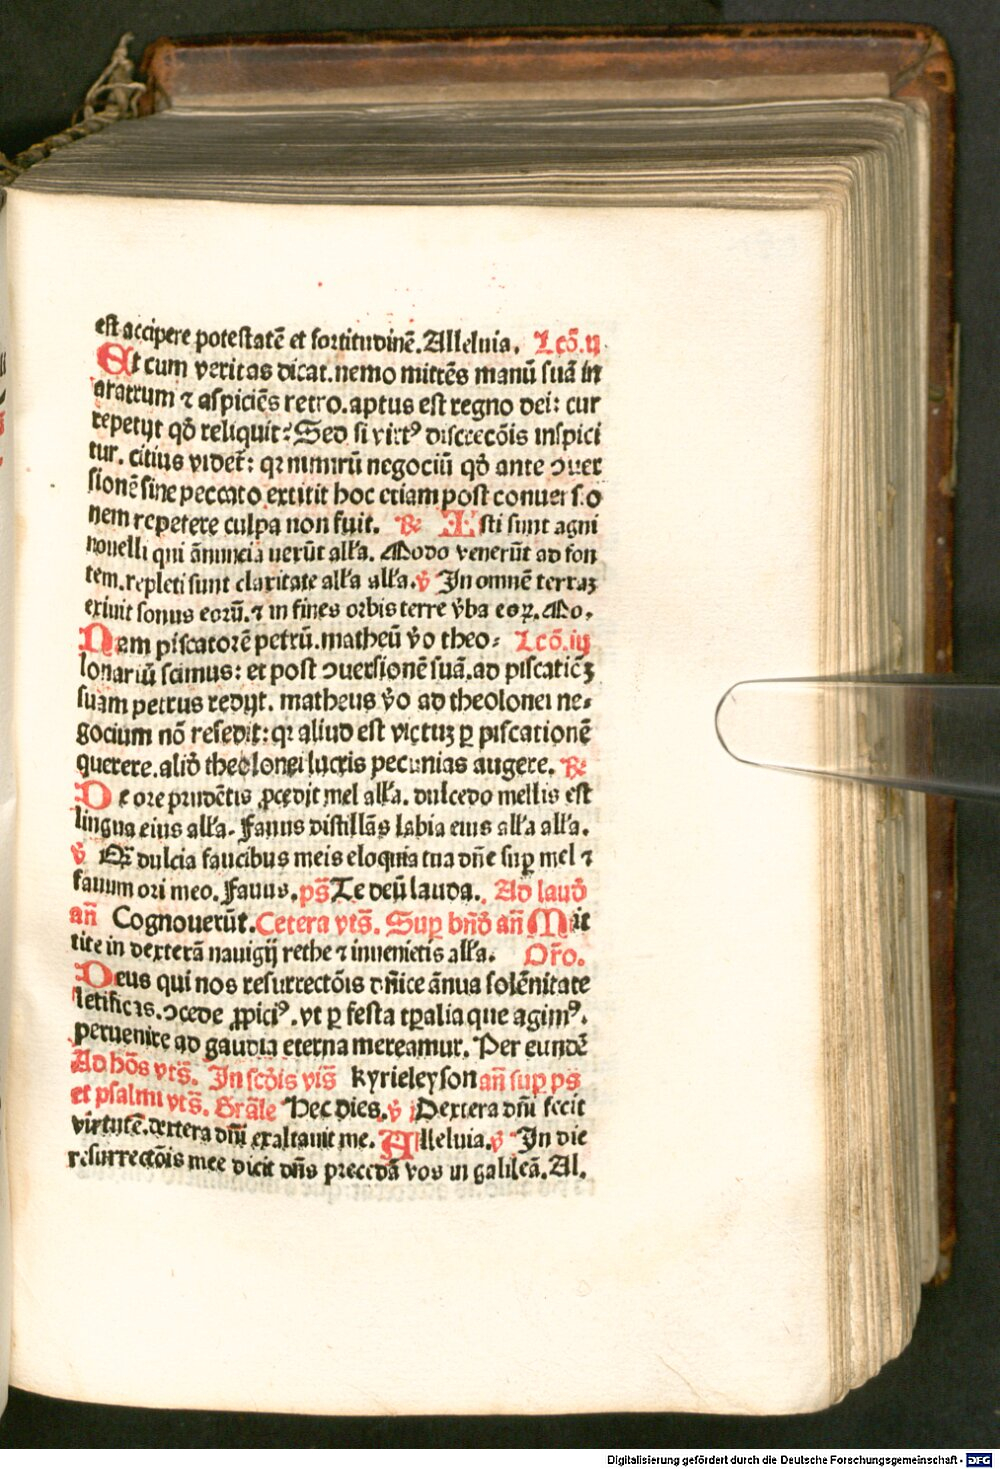 est accipere potestatē et fortitudinē. Alleluia. Lcō.ij.
Et cum veritas dicat. nemo mittēs manū suā in
aratrum ⁊ aspiciēs retro. aptus est regno dei: cur
repetijt qđ reliquit? Sed si virtꝰ discrecōis inspici
tur. citius videt᷑: qꝛ nimirū negociū qđ ante ↄuer
sionē sine peccato extitit hoc etiam post conuersio
nem repetere culpa non fuit. ℟ Isti sunt agni
nouelli qui ānuncia uerūt alľa. Modo venerūt ad fon
tem. repleti sunt claritate alľa alľa. ℣ In omnē terraꝫ
exiuit sonus eorū. ⁊ in fines orbis terre v̄ba eoꝝ. Mo.
Nam piscatorē petrū. matheū v̄o theo⸗ Lcō.iij
lonariū scimus: et post ↄuersionē suā. ad piscatiōēꝫ
suam petrus redijt. matheus v̄o ad theolonei ne⸗
gocium nō resedit: qꝛ aliud est victuꝫ ꝑ piscationē
querere. aliđ theolonei lucris pecunias augere. ℟
De ore prudētis ꝓcedit mel alľa. dulcedo mellis est
lingua eius alľa. Fauus distillās labia eius alľa alľa.
℣ Qꝫ dulcia faucibus meis eloquia tua dn̄e suꝑ mel ⁊
fauum ori meo. Fauus. ps̄ Te deū lauda. Ad laud̄
an̄ Cognouerūt. Cetera vts̄. Suꝑ bn̄đ an̄ Mit
tite in dexterā nauigij rethe ⁊ inuenietis alľa. Or̄o.
Deus qui nos resurrectōis dn̄ice ānua solēnitate
letificas. ↄcede ꝓpiciꝰ. vt ꝑ festa tꝑalia que agimꝰ.
peruenire ad gaudia eterna mereamur. Per eundē
Ad hōs vts̄. In scđis vis̄ kyrieleyson an̄ suꝑ ps
et psalmi vts̄. Grāle Hec dies. ℣ Dextera dn̄i fecit
virtutē. dextera dn̄i exaltauit me. Alleluia. ℣ In die
resurrectōis mee dicit dn̄s precedā vos in galileā. Al.
Digitalisierung gefördert durch die Deutsche Forschungsgemeinschaft - DFG